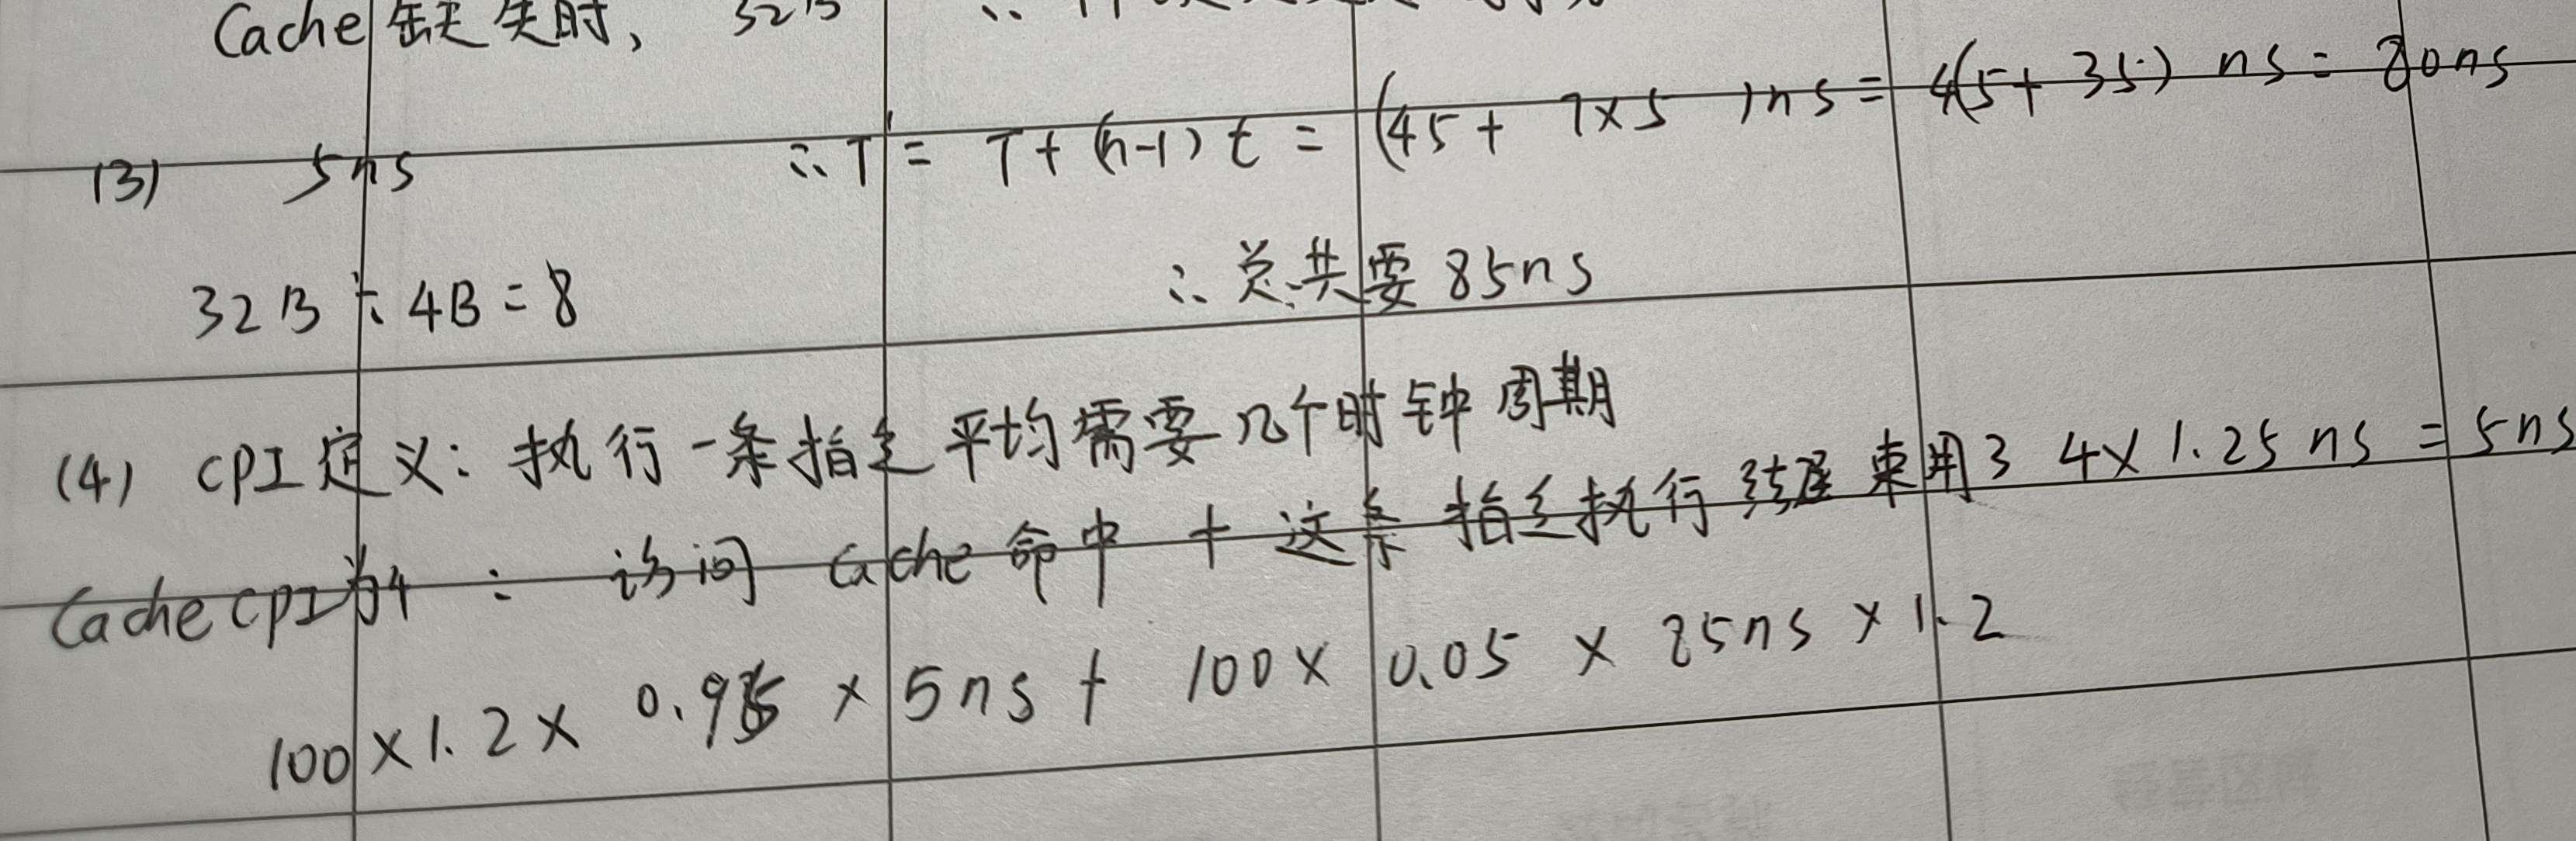 Cache 缺失时, 32B ∴
(3) 5ns ∴T' = T+(n-1)t = (45+ 7×5 )ns = 4(5+ 35) ns = 80ns
32B ÷ 4B = 8 ∴ 总共要 85ns
(4) CPI 定义: 执行一条指令平均需要几个时钟周期
Cache CPI为4 : 访问 Cache 命中 + 这条指令执行结束用3 4×1.25ns = 5ns
100×1.2× 0.95 × 5ns + 100× 0.05 × 85ns × 1.2